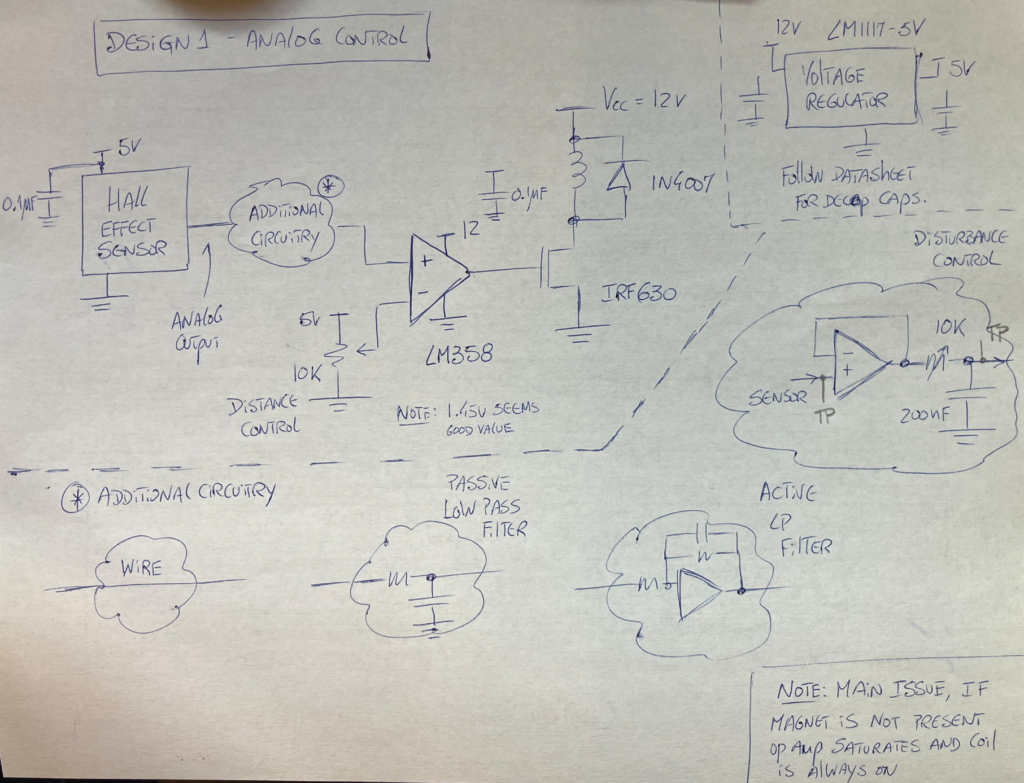 DESIGN 1 - ANALOG CONTROL
12V LM1117-5V
VOLTAGE
REGULATOR
5V
FOLLOW DATASHEET
FOR DECAP CAPS.
5V
0.1µF
HALL
EFFECT
SENSOR
ANALOG
OUTPUT
*
ADDITIONAL
CIRCUITRY
12
+
-
LM358
5V
10K
DISTANCE
CONTROL
NOTE: 1.45V SEEMS
GOOD VALUE
0.1µF
Vcc = 12V
1N4007
IRF630
DISTURBANCE
CONTROL
SENSOR
TP
-
+
10K
TP
200nF
* ADDITIONAL CIRCUITRY
WIRE
PASSIVE
LOW PASS
FILTER
ACTIVE
LP
FILTER
NOTE: MAIN ISSUE, IF
MAGNET IS NOT PRESENT
OP AMP SATURATES AND COIL
IS ALWAYS ON